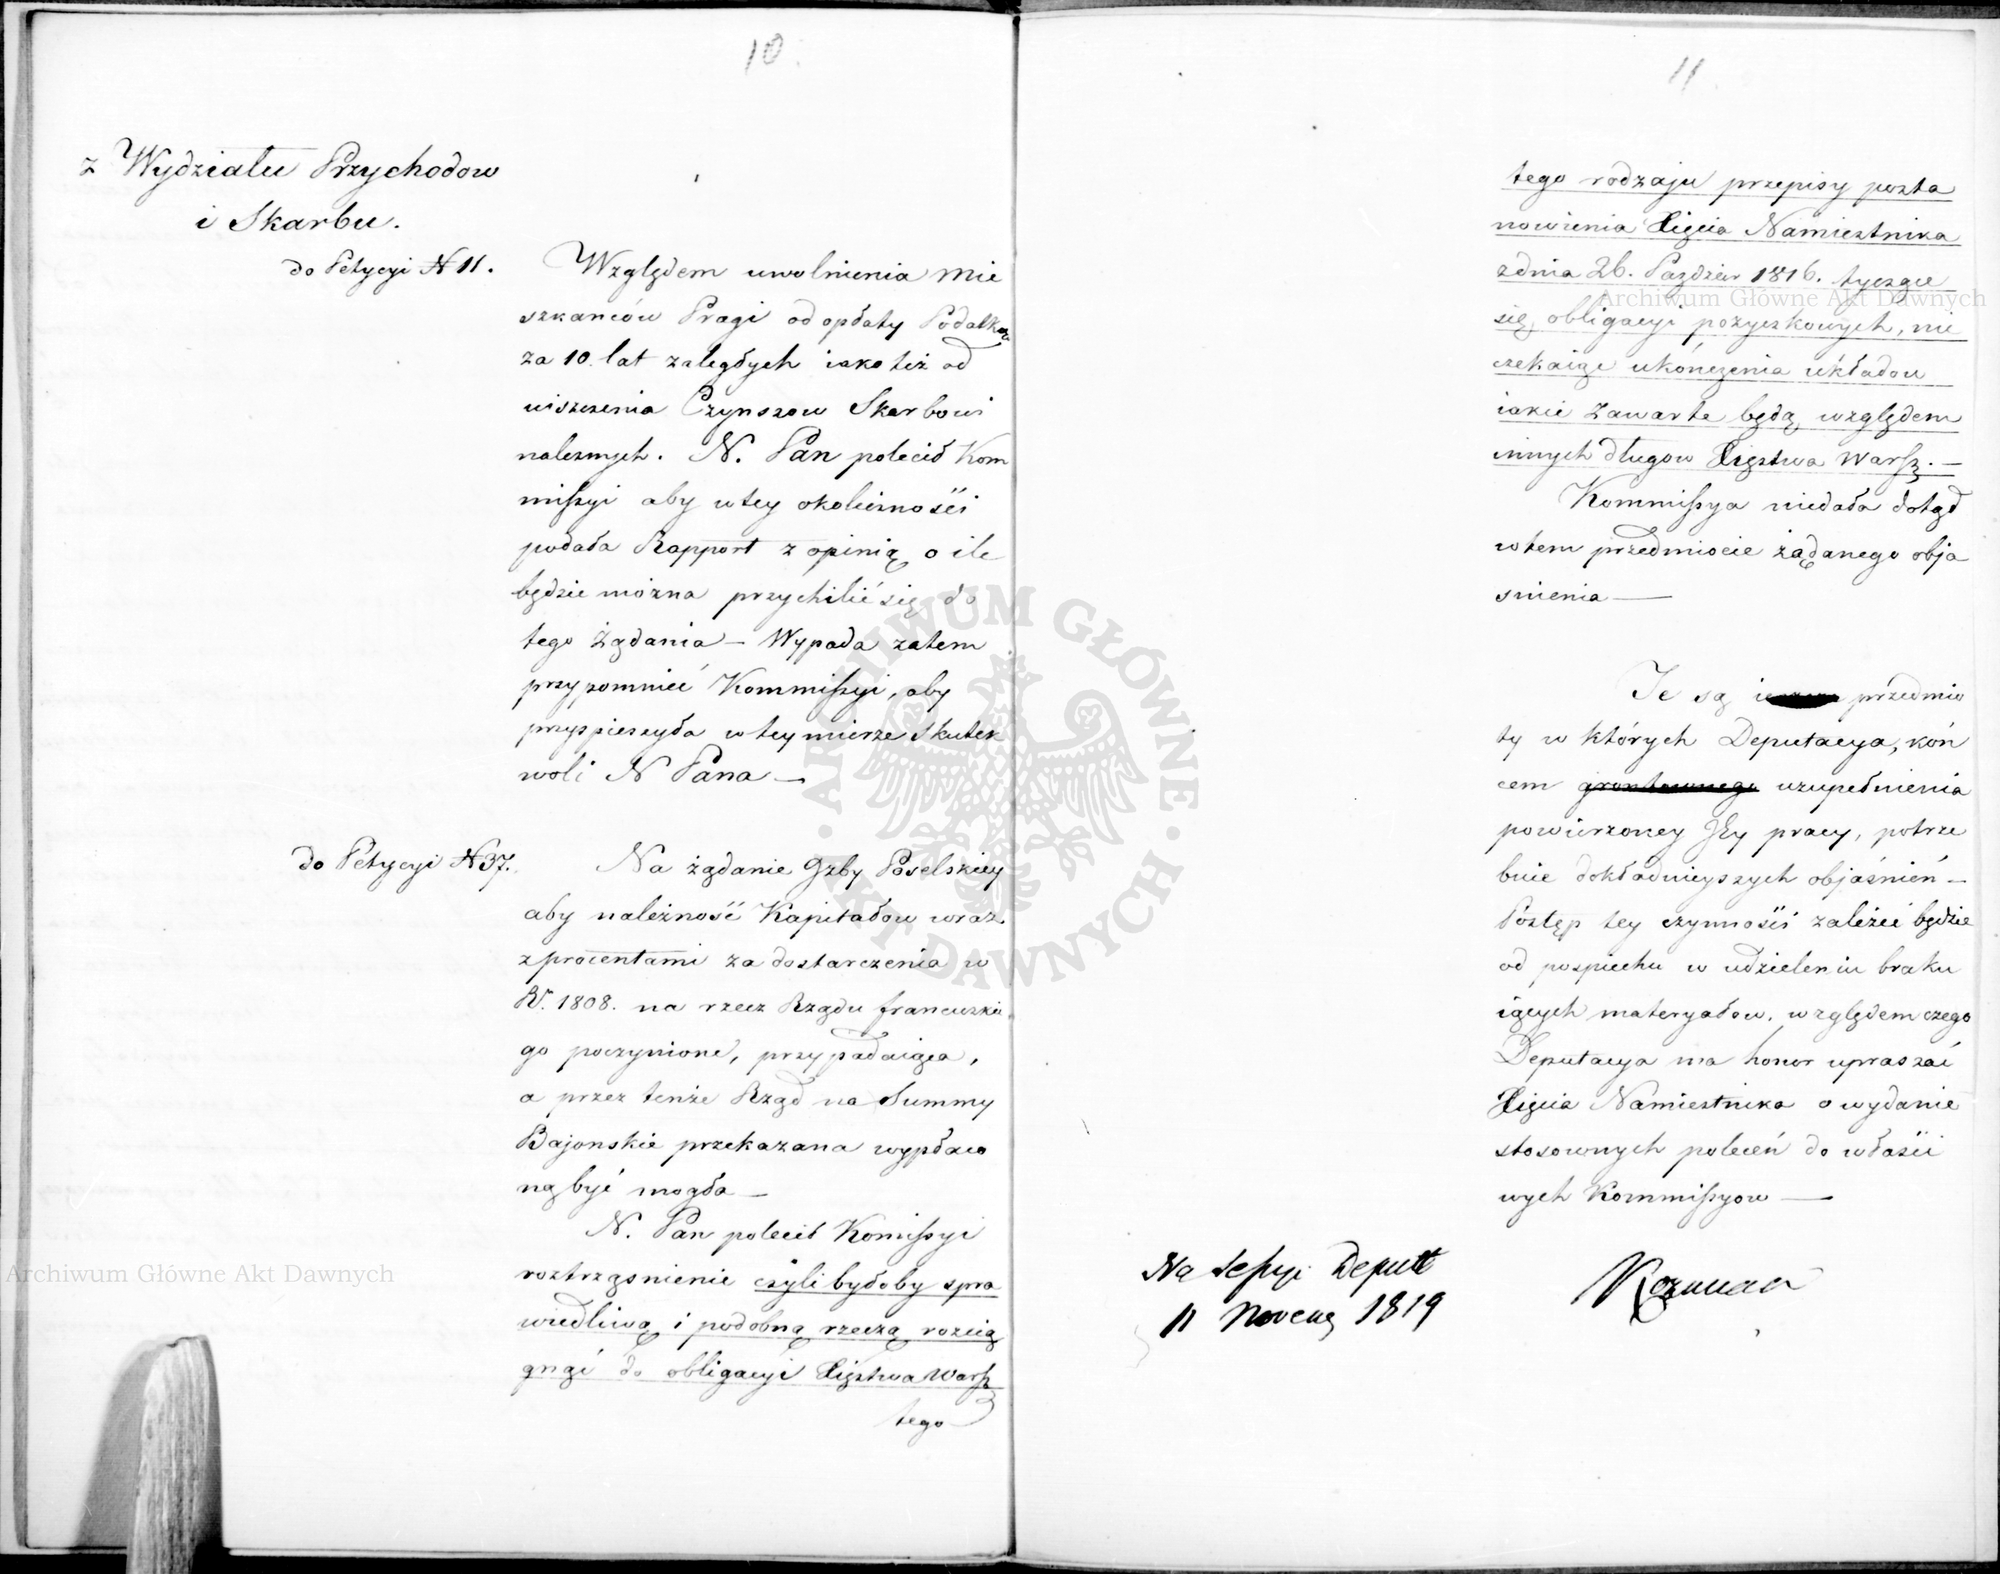 10
z Wydziału Przychodow
i Skarbu.
do Petycyi N 11.
Względem uwolnienia Mie
szkańców Pragi od opłaty Podatków
za 10. lat zaległych iako też od
uiszczenia Czynszow Skarbowi
należnych. N. Pan polecił Kom
missyi aby w tey okoliczności
podała Rapport z opinią o ile
będzie można przychilić się do
tego żądania — Wypada zatem
przypomnieć Kommissyi, aby
przyspieszyła w tey mierze skutek
woli N Pana —
do Petycyi N 37.
Na żądanie Izby Poselskiey
aby należność Kapitałow wraz
z procentami za dostarczenia w
R. 1808. na rzecz Rządu francuzkie
go poczynione, przypadaiąca,
a przez tenże Rząd na Summy
Bajonskie przekazana wypłaco
ną być mogła —
N. Pan polecił Komissyi
roztrząsnienie czyli byłoby spra
wiedliwą i podobną rzeczą rozcią
gnąć do obligacyi Xięstwa Warsz
tego
11
tego rodzaju przepisy posta
nowienia Xięcia Namiestnika
z dnia 26. Paździer 1816. tyczące
się obligacyi pożyczkowych, nie
czekaiąc ukończenia układow
iakie zawarte będą względem
innych długow Xięstwa Warsz. —
Kommissya niedała dotąd
w tem przedmiocie żądanego obja
snienia —
Te są przedmio
ty w których Deputacya, koń
cem gruntownego uzupełnienia
powierzoney Jey pracy, potrze
buie dokładnieyszych objaśnień —
Postęp tey czynności zależeć będzie
od pospiechu w udzieleniu braku
iących materyałow, względem czego
Deputacya ma honor upraszać
Xięcia Namiestnika o wydanie
stosownych poleceń do właści
wych Kommissyow —
Na Sessyi Deputt
11 1819
Archiwum Główne Akt Dawnych
Archiwum Główne Akt Dawnych
ARCHIWUM GŁÓWNE · AKT DAWNYCH ·